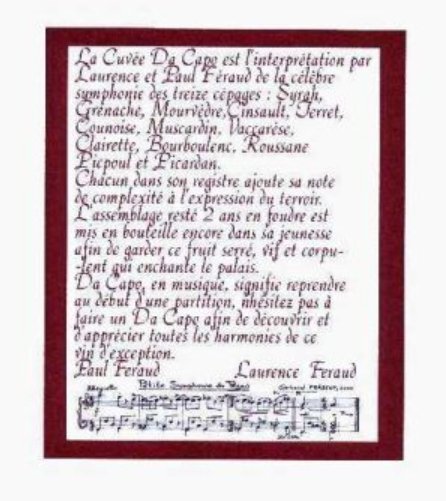 La Cuvée Da Capo est l'interprétation par
Laurence et Paul Féraud de la célèbre
symphonie des treize cépages : Syrah,
Grenache, Mourvèdre, Cinsault, Terret,
Counoise, Muscardin, Vaccarèse,
Clairette, Bourboulenc, Roussane
Picpoul et Picardan.
Chacun dans son registre ajoute sa note
de complexité à l'expression du terroir.
L'assemblage resté 2 ans en foudre est
mis en bouteille encore dans sa jeunesse
afin de garder ce fruit serré, vif et corpu-
-lent qui enchante le palais.
Da Capo, en musique, signifie reprendre
au début d'une partition, n'hésitez pas à
faire un Da Capo afin de découvrir et
d'apprécier toutes les harmonies de ce
vin d'exception.
Paul Feraud Laurence Feraud
Allegretto Petite Symphonie du